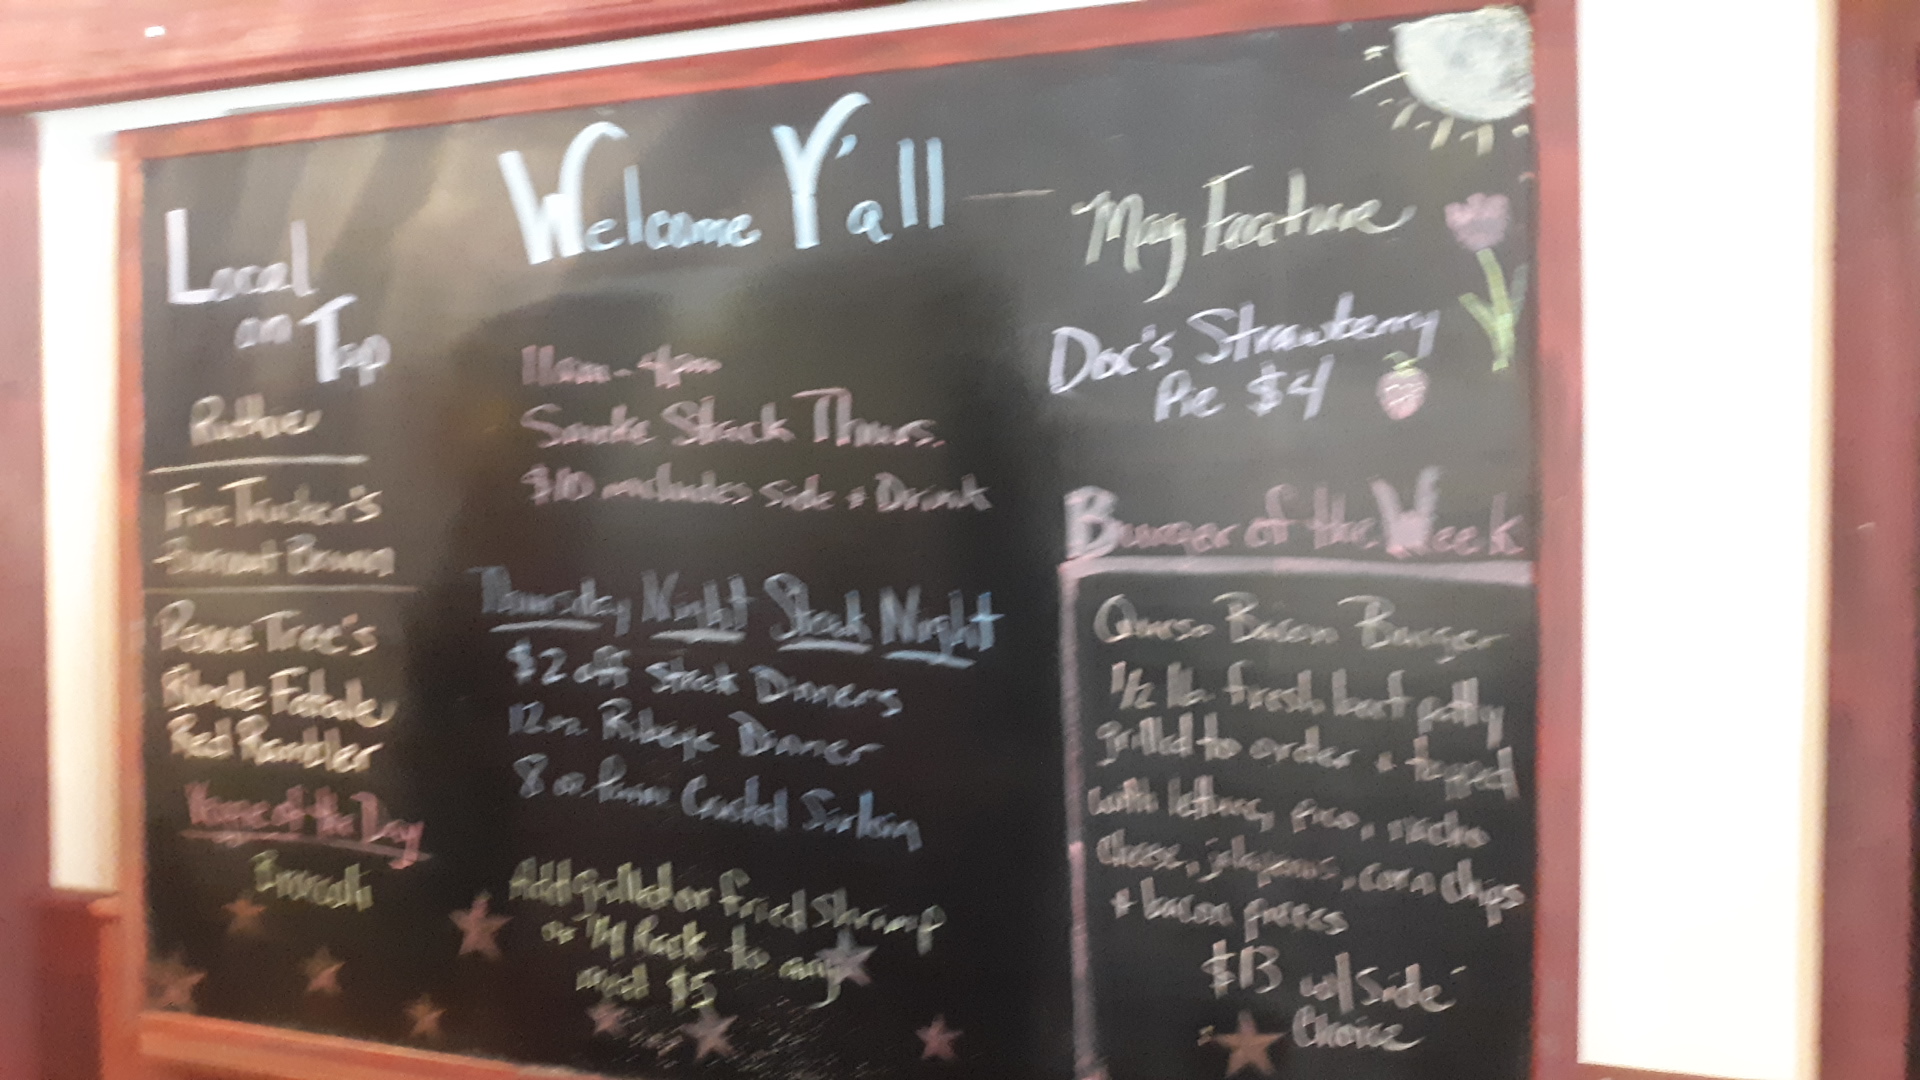 Welcome Y'all
Local
on Tap
Fire Trucker's
Burnout Brown
Peace Tree's
Blonde Fatale
Red Rambler
Veggie of the Day
Broccoli
11am - 4pm
Smoke Stack Thurs.
$10 includes side + Drink
Thursday Night Steak Night
$2 off Steak Dinners
12oz Ribeye Dinner
8 oz Parm Crusted Sirloin
Add grilled or fried Shrimp
or 1/4 Rack to any
meal $5
May Feature
Doc's Strawberry
Pie $4
Burger of the Week
Queso Bacon Burger
1/2 lb. fresh beef patty
grilled to order + topped
with lettuce, pico, nacho
cheese, jalapenos, corn chips
+ bacon pieces
$13 w/ Side
Choice